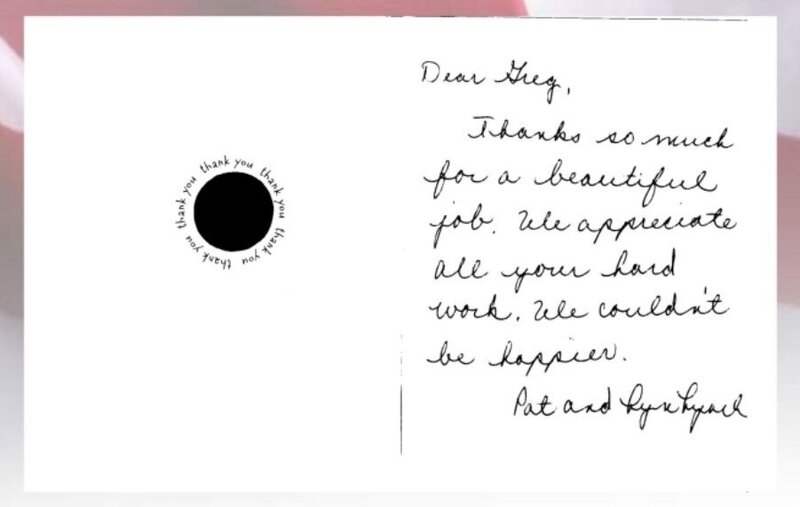 thank you thank you thank you thank you thank you thank you
Dear Greg,
Thanks so much
for a beautiful
job. We appreciate
all your hard
work. We couldn't
be happier.
Pat and Lyn Lynch